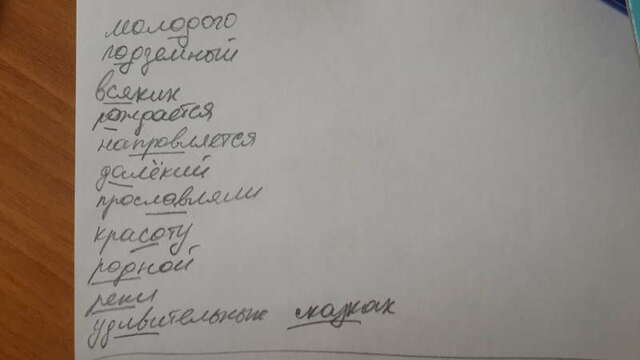 молодого
подземный
всяких
рождается
направляется
далёкий
прославляли
красоту
родной
реки
удивительных сказках